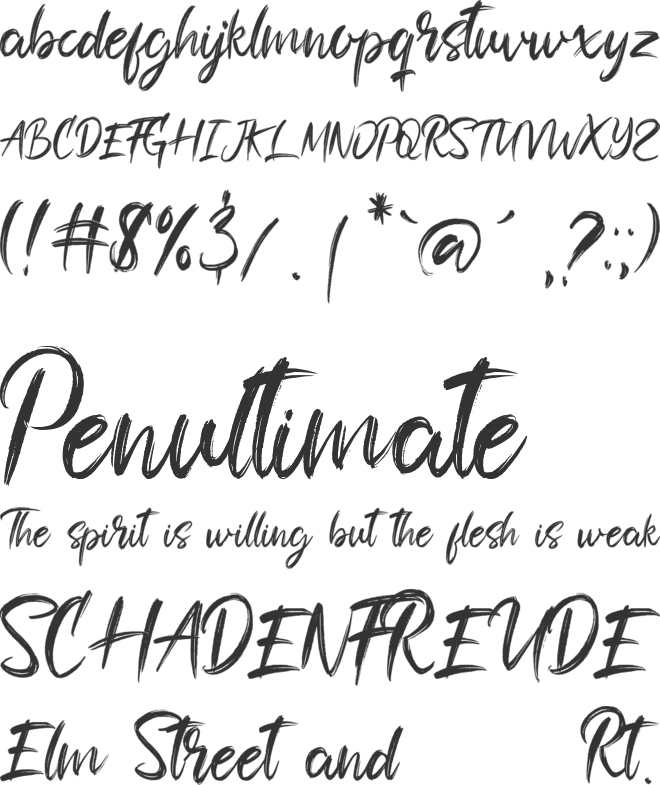 abcdefghijklmnopqrstuvwxyz
ABCDEFGHIJKLMNOPQRSTUVWXYZ
(!#$%&/.|*`@´,?:;)
Penultimate
The spirit is willing but the flesh is weak
SCHADENFREUDE
Elm Street and Rt.